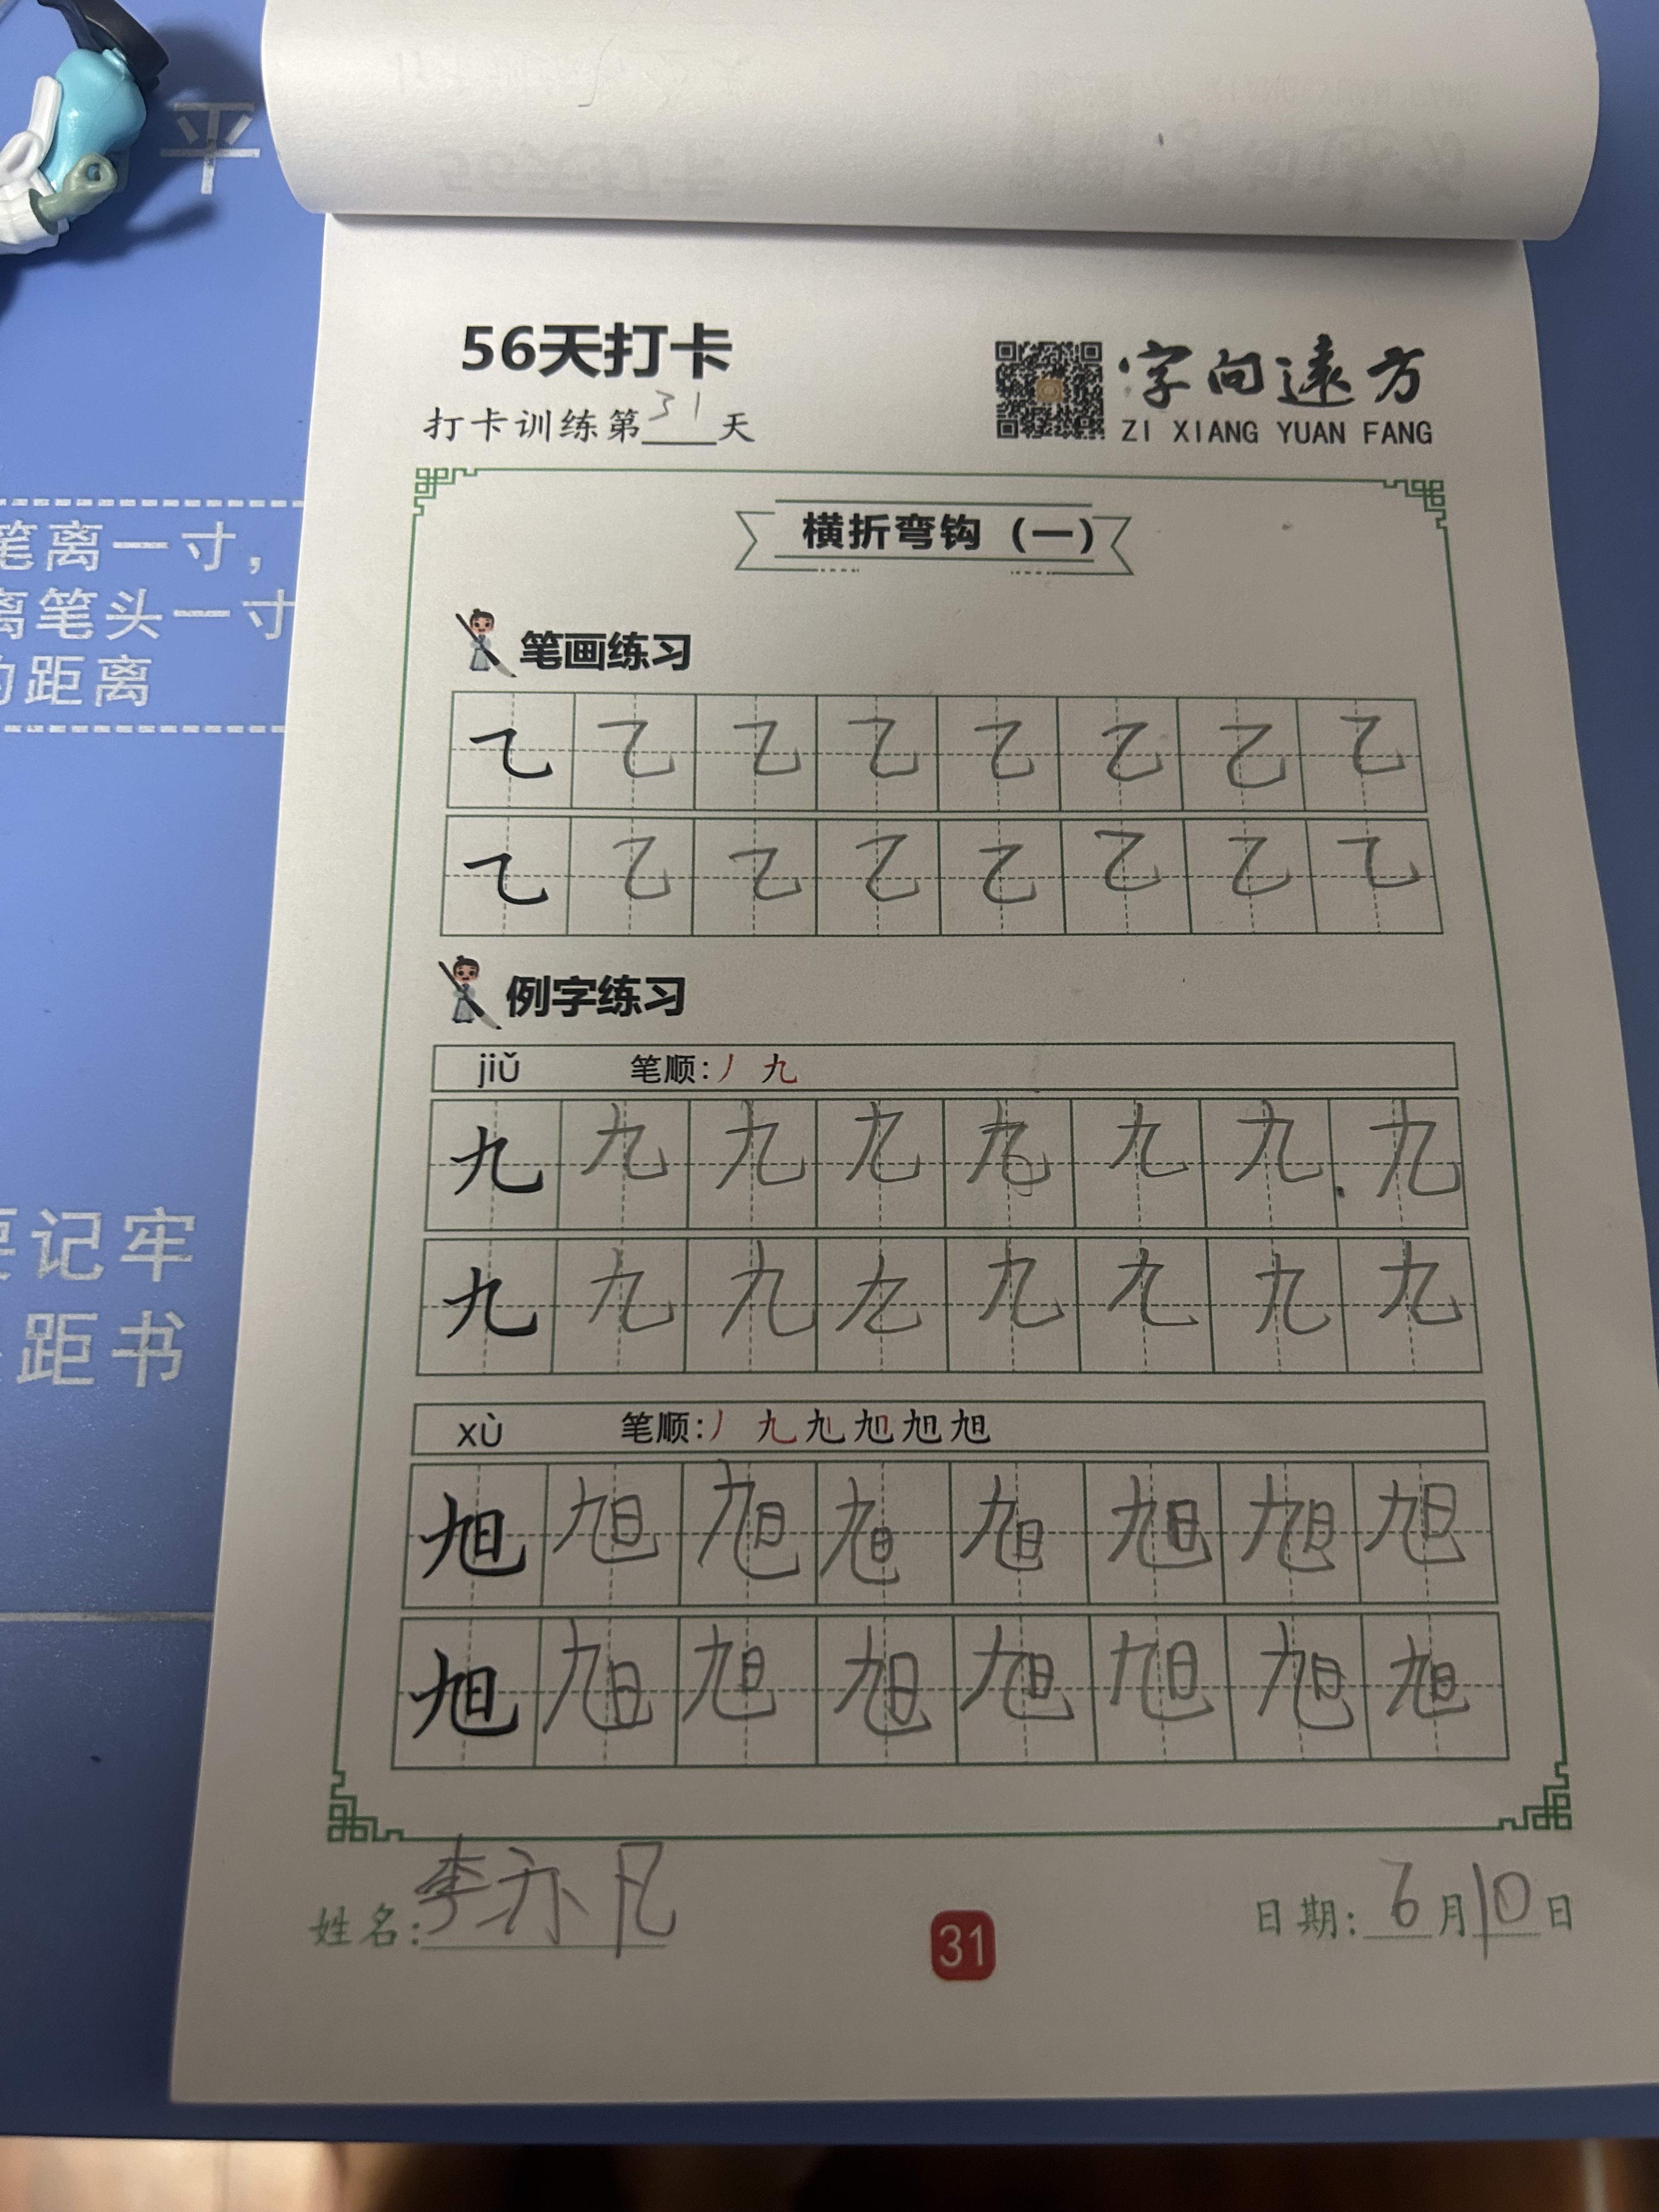 平
笔离一寸，
离笔头一寸
的距离
要记牢
距书
56天打卡
打卡训练第31天
字向遠方
ZI XIANG YUAN FANG
横折弯钩（一）
笔画练习
乙 乙 乙 乙 乙 乙 乙 乙
乙 乙 乙 乙 乙 乙 乙 乙
例字练习
jiǔ 笔顺：丿 九
九 九 九 九 九 九 九 九
九 九 九 九 九 九 九 九
xù 笔顺：丿 九 九 旭 旭 旭
旭 旭 旭 旭 旭 旭 旭 旭
旭 旭 旭 旭 旭 旭 旭 旭
姓名：李亦凡
31
日期：6月10日